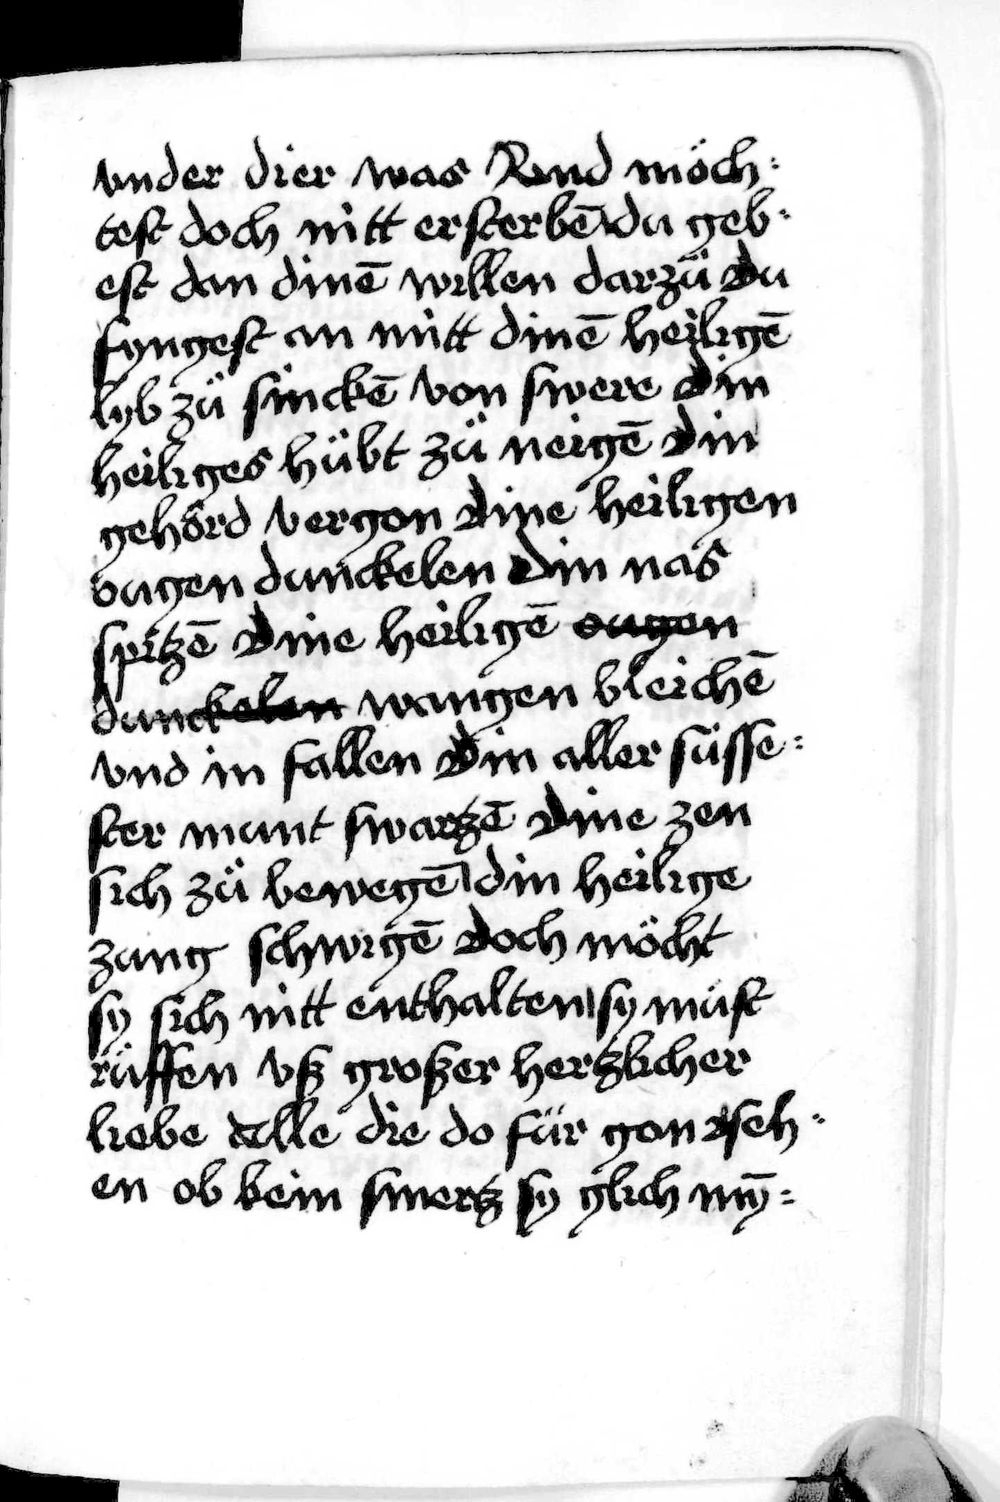 vnder dier was Rnnd möch:
test doch nitt ersterbē du geb:
est dan dinē willen darzü Du
fyngest an mitt dinē heiligē
lyb zü sinckē von swere Din
heiliges hübt zü neigē Din
gehörd vergon Dine heiligen
ougen dunckelen Din nas
spitzē Dine heiligē ougen
dunckelen wangen bleichē
vnd in fallen Din aller süsse:
ster munt swartzē Dine zen
sich zü bewegē din heilige
zung schwigē Doch möcht
sy sich nitt enthalten sy müst
rüffen vß großer hertzlicher
liebe alle die do für gon seh:
en ob kein smertz sy glich mÿ: